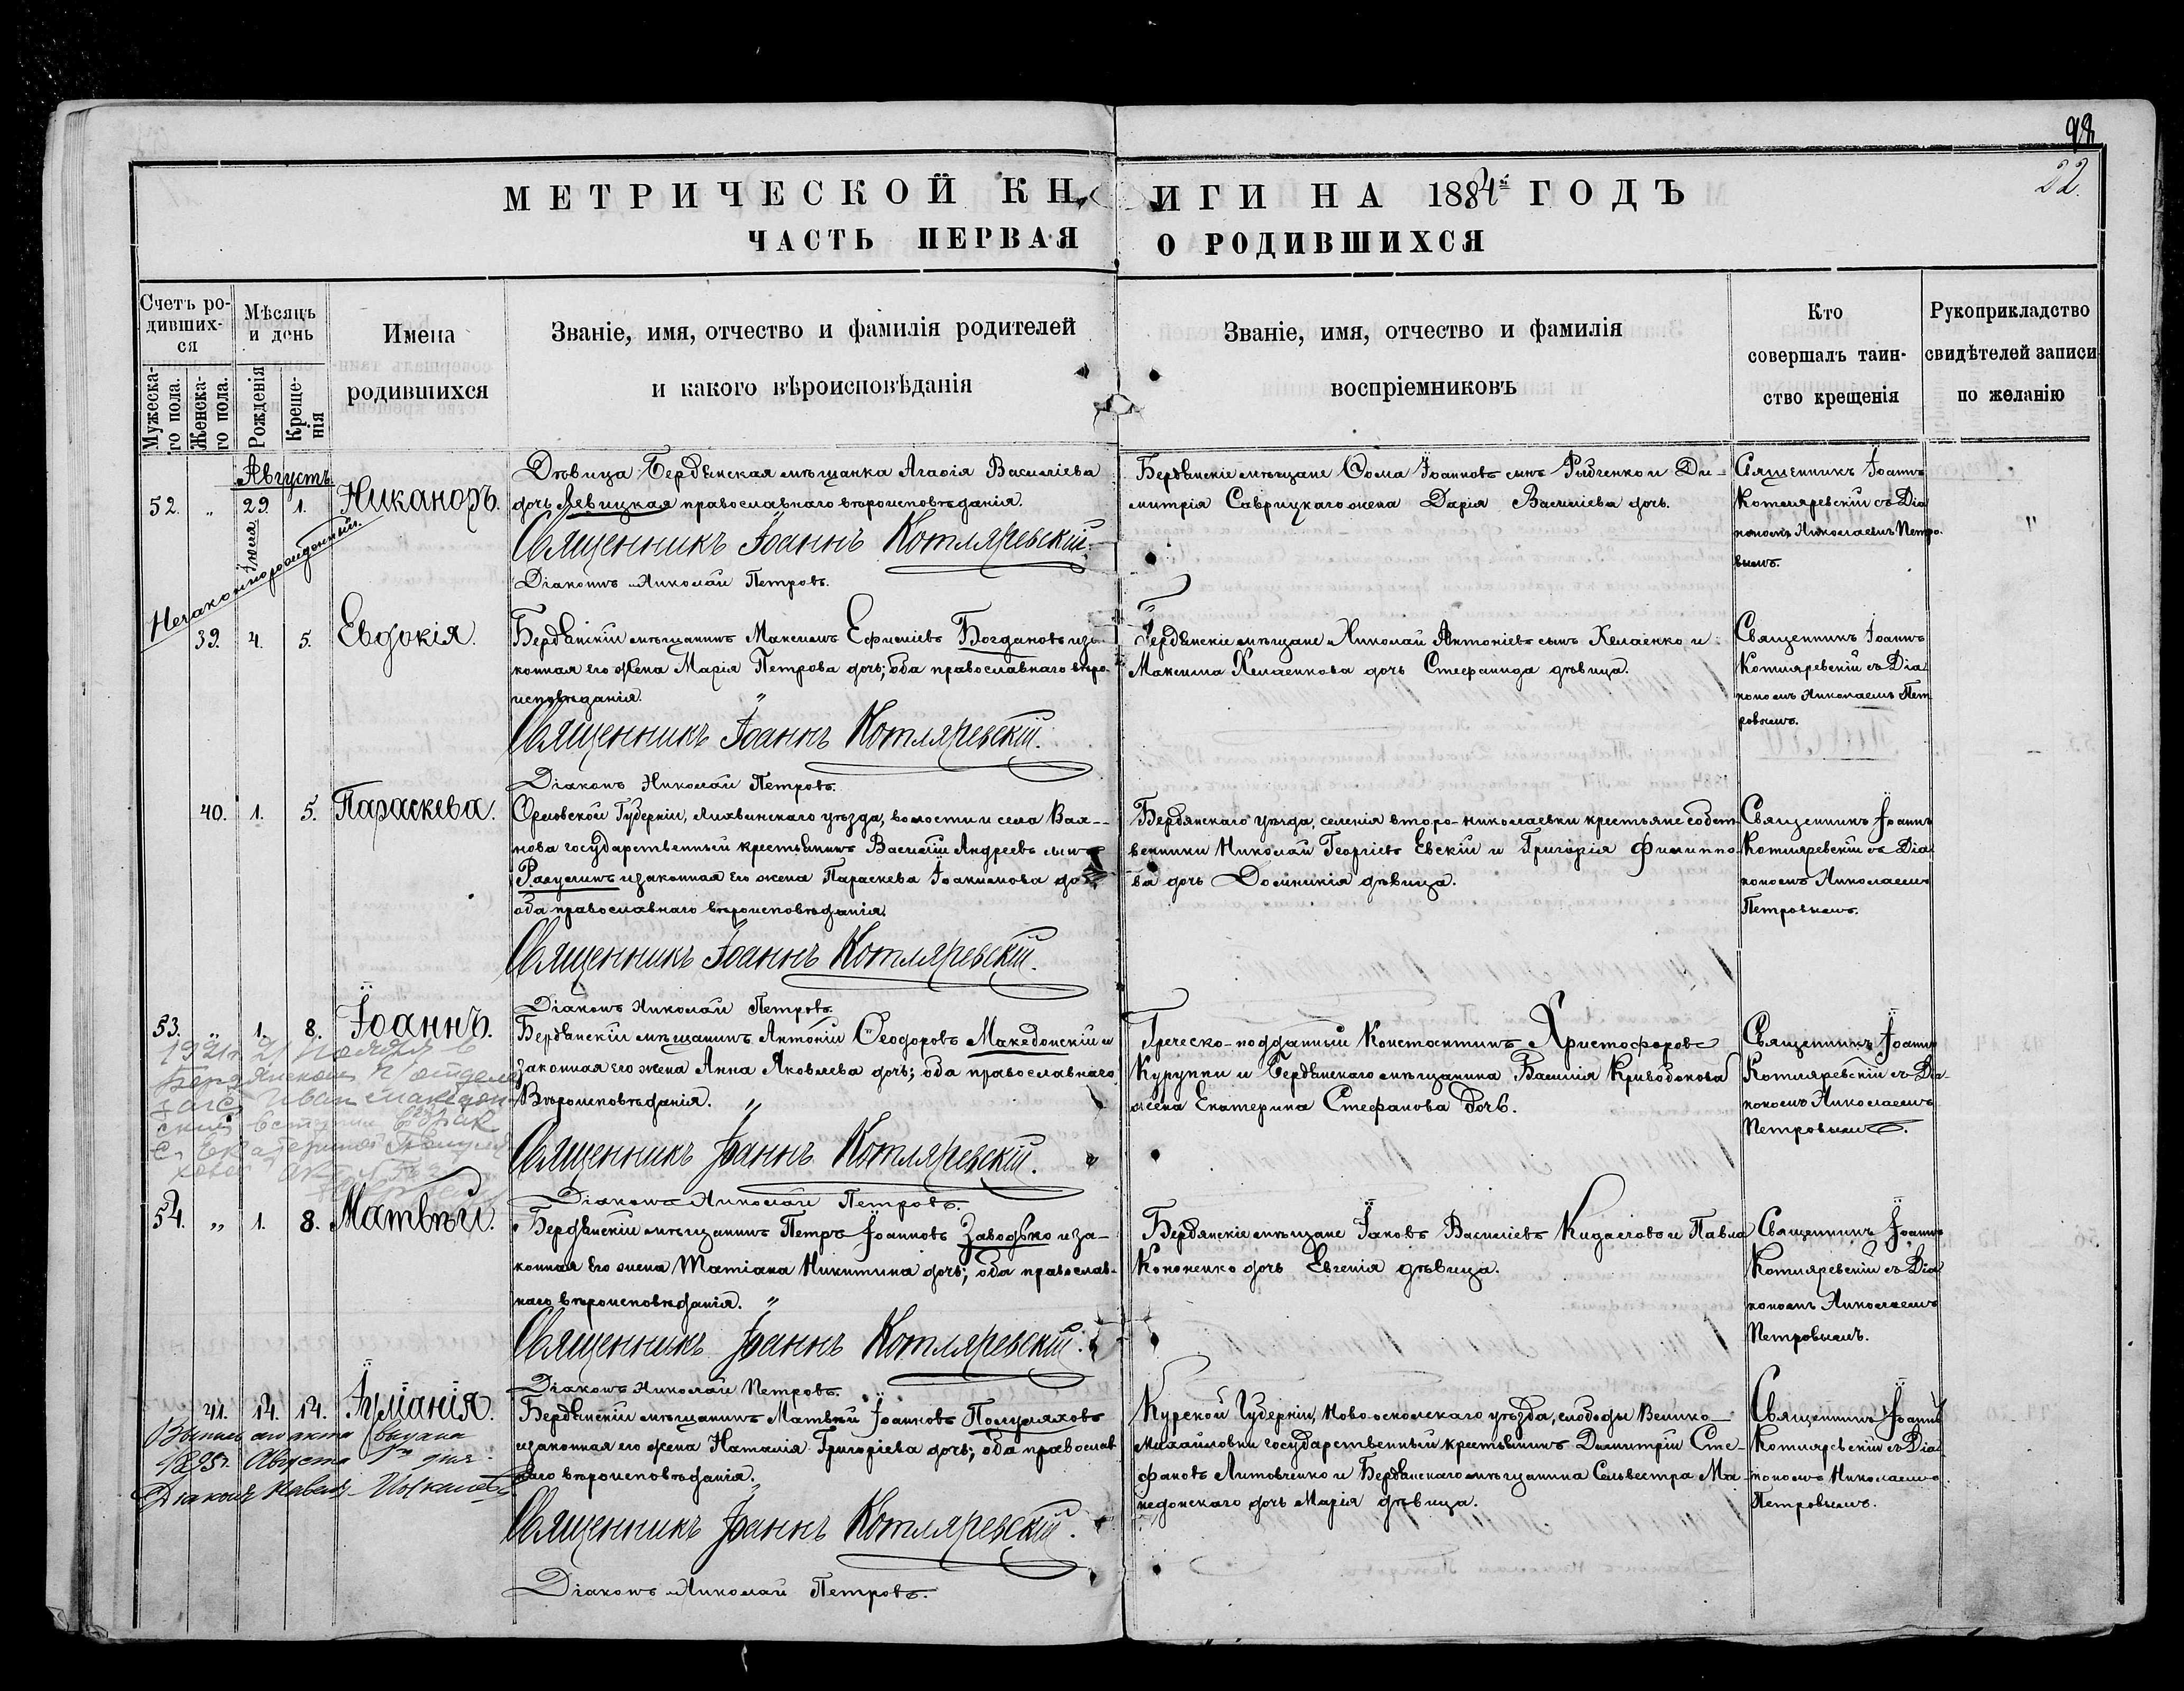 98
22.
МЕТРИЧЕСКОЙ КНИГИ НА 1884й ГОДЪ
ЧАСТЬ ПЕРВАЯ О РОДИВШИХСЯ
Счетъ ро-
дивших-
ся
Мужеска-
го пола.
Женска-
го пола.
Мѣсяцъ
и день
Рожденія
Креще-
нія
Имена
родившихся
Званіе, имя, отчество и фамилія родителей
и какого вѣроисповѣданія
Званіе, имя, отчество и фамилія
воспріемниковъ
Кто
совершалъ таин-
ство крещенія
Рукоприкладство
свидѣтелей записи
по желанію
Августъ
52. " 29 1. Никаноръ.
Іюля
Незаконнорожденный.
Дѣвица Бердянская мѣщанка Агафія Василіева
дочь Левицкая православнаго вѣроисповѣданія.
Священникъ Іоаннъ Котляревскій.
Діаконъ Николай Петровъ.
Бердянскіе мѣщане Ѳома Іоанновъ сынъ Рыбченко и Ди-
митрія Саврицкаго жена Дарія Василіева дочь.
Священникъ Іоаннъ
Котляревскій съ Діа
кономъ Николаемъ Петро-
вымъ.
"
39. 4. 5. Евдокія.
Бердянскій мѣщанинъ Максимъ Ефиміевъ Богдановъ и за
конная его жена Марія Петрова дочь; оба православнаго вѣро-
исповѣданія.
Священникъ Іоаннъ Котляревскій.
Діаконъ Николай Петровъ.
Бердянскіе мѣщане Николай Антоніевъ сынъ Хелаенко и
Максима Хелаенкова дочь Стефанида дѣвица.
Священникъ Іоаннъ
Котляревскій съ Діа
кономъ Николаемъ Пет
ровымъ.
40. 1. 5. Параскева.
Орловской Губерніи, Лихвинскаго уѣзда, волости и села
нова государственный крестьянинъ Василій Андреевъ сынъ
и законная его жена Параскева Іоакимова до
оба православнаго вѣроисповѣданія.
Священникъ Іоаннъ Котляревскій.
Діаконъ Николай Петровъ.
Бердянскаго уѣзда, селенія второ-николаевки крестьяне собст
венники Николай Георгіевъ Евскій и Григорія Филиппо-
ва дочь Домникія дѣвица.
Священникъ Іоаннъ
Котляревскій съ Діа
кономъ Николаемъ
Петровымъ.
53. " 1. 8. Іоаннъ.
1921г. 21 ноября в
Бердянском п/отделе
загс Иван Македон-
ский вступил в брак
с Екатериной
Бердянскій мѣщанинъ Антоній Ѳеодоровъ Македонскій и
законная его жена Анна Яковлева дочь; оба православнаго
Вѣроисповѣданія. "
Священникъ Іоаннъ Котляревскій.
Діаконъ Николай Петровъ.
Греческо-подданный Константинъ Христофоровъ
Куруппи и Бердянскаго мѣщанина Василія Кривобокова
жена Екатерина Стефанова дочь.
Священникъ Іоаннъ
Котляревскій съ Діа-
кономъ Николаемъ
Петровымъ.
54. " 1. 8. Матвѣй.
Бердянскій мѣщанинъ Петръ Іоанновъ Заводько и за-
конная его жена Татіана Никитина дочь; оба православ-
наго вѣроисповѣданія. "
Священникъ Іоаннъ Котляревскій.
Діаконъ Николай Петровъ.
Бердянскіе мѣщане Іаковъ Василіевъ Кидаловъ и Павла
Кононенко дочь Евгенія дѣвица.
Священникъ Іоаннъ
Котляревскій съ Діа
кономъ Николаемъ
Петровымъ.
41. 14. 14. Іуліанія.
Выпись акта выдана
1895г. Августа 1го дня.
Діаконъ Павелъ
Бердянскій мѣщанинъ Матвѣй Іоанновъ Полуляховъ
и законная его жена Наталія Григоріева дочь; оба православ
наго вѣроисповѣданія. "
Священникъ Іоаннъ Котляревскій.
Діаконъ Николай Петровъ.
Курской Губерніи, Ново-оскольскаго уѣзда, слободы Велико-
михайловки государственный крестьянинъ Димитрій Сте-
фановъ Литовченко и Бердянскаго мѣщанина Сильвестра Ма-
кедонскаго дочь Марія дѣвица.
Священникъ Іоаннъ
Котляревскій съ Діа
кономъ Николаемъ
Петровымъ.